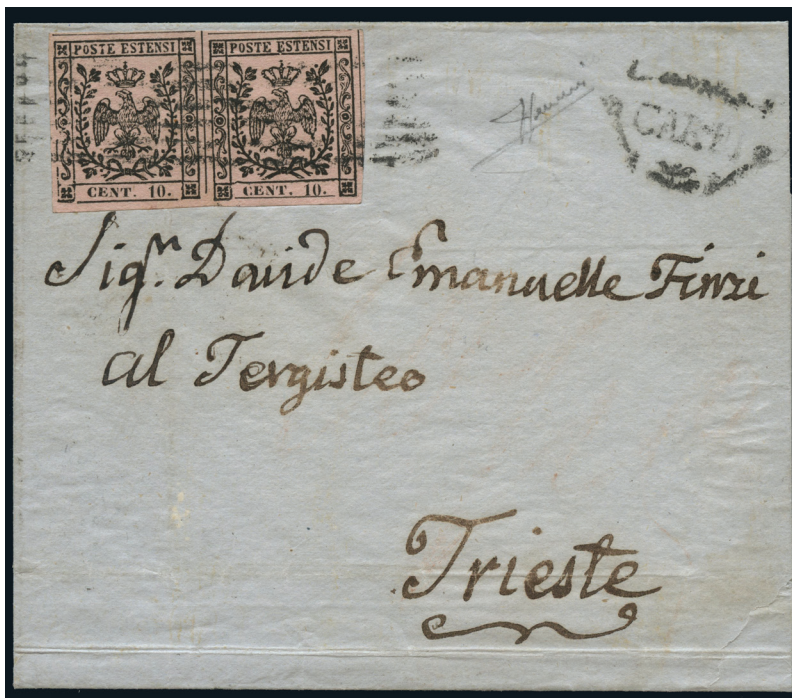 POSTE ESTENSI POSTE ESTENSI
CENT. 10. CENT. 10.
CARPI
Sig.r Davide Emanuelle Finzi
al Tergisteo
Trieste